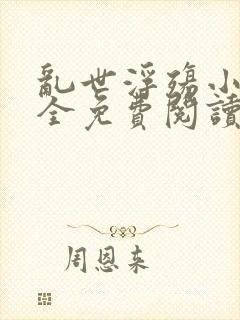 亂世浮殤小
全免費閱讀
周恩来